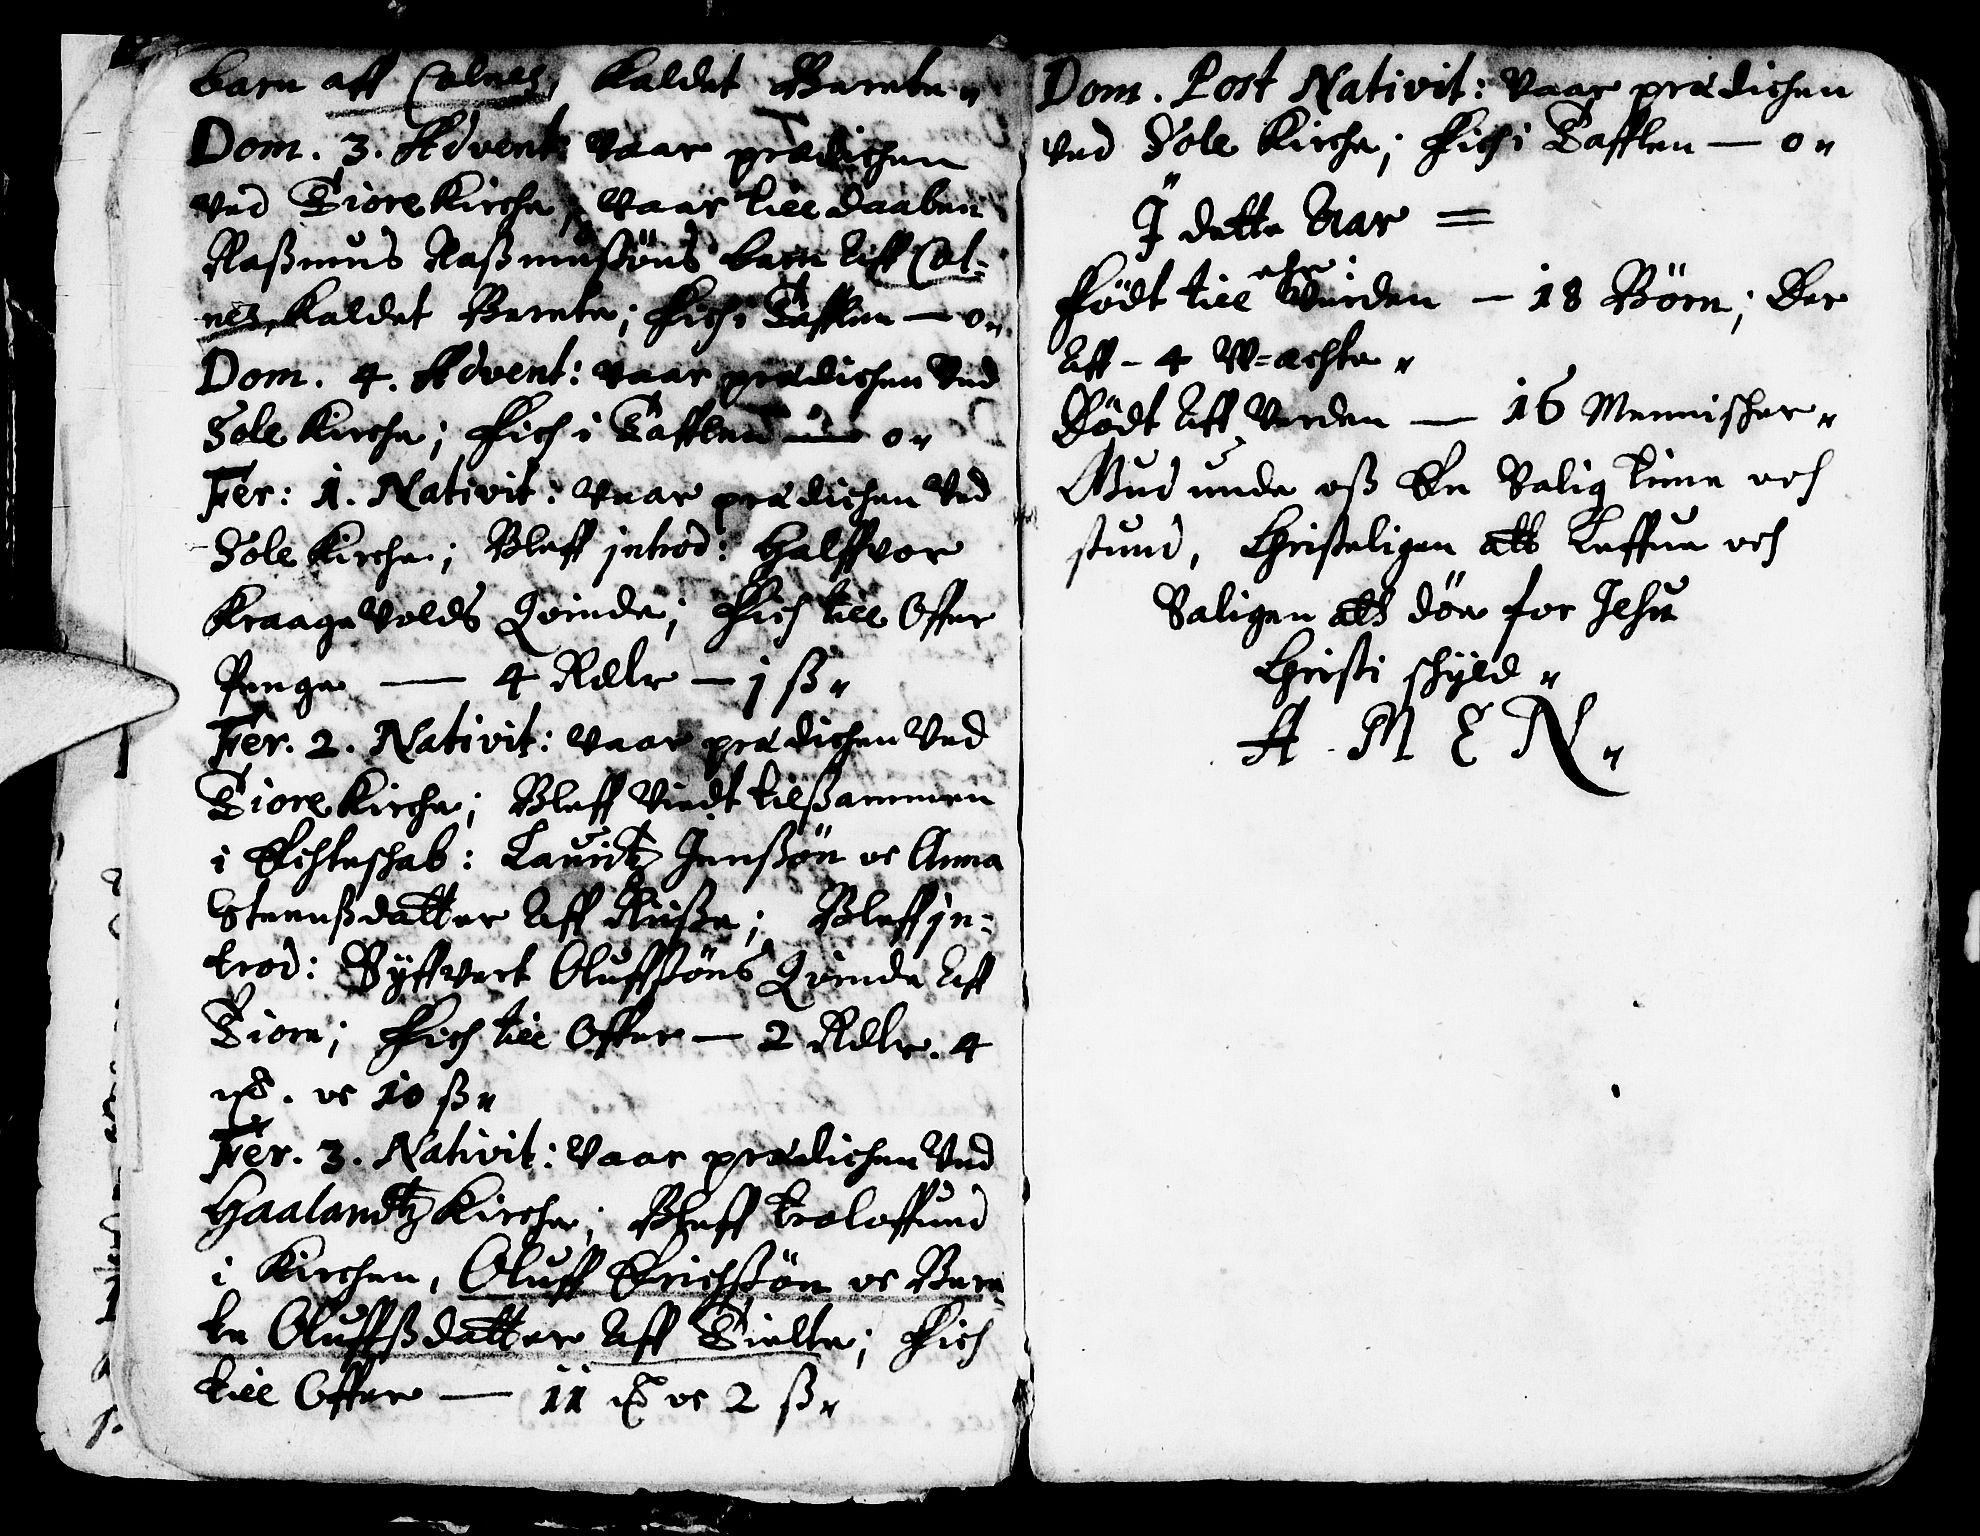 barn aff Colnes, kaldet Berete„
Dom. 3. Advent: Vaar prædichen
ved Tiore Kirche, Vaar till daaben
Raßmus Raßmußøns barn Aff Col=
nes, kaldet Berete; Fich i Tafflen — 0„
Dom. 4. Advent: Vaar prædichen Ved
Sole Kirche; Fich i Tafflen — 0„
Fer: 1. Nativit: Vaar prædichen Ved
Sole Kirche; Bleff introd: Halffvor
Kraagevolds Qvinde; Fich till Offer
Penge — 4 Rdlr — j ß„
Fer. 2. Nativit: Vaar prædichen Ved
Tiore Kirche; Bleff Viedt tilßammen
i Echteschab: Lauritz Jenßøn oc Anna
Steenßdatter Aff Ruße; Bleff in=
trod: Syffvert Oluffßøns Qvinde Aff
Tiore; Fich till Offer — 2 Rdlr. 4
ꝟ. oc 10 ß„
Fer. 3. Nativit: Vaar prædichen Ved
Haalandtz Kirche; Bleff troloffued
i Kirchen, Oluff Erichßøn oc Bere=
te Oluffßdatter Aff Tielte; Fich
till Offer — 11 ꝟ oc 2 ß„
Dom. Post Nativit: Vaar prædichen
ved Sole Kirche; Fich i Tafflen — 0„
I dette Aar =
Født till Verden — 18 Børn; Der
Aff - 4 W=ächte„
Dødt Aff Verden — 16 Mennischer„
Gud unde oß En Salig time och
stund, Christeligen att leffue och
Saligen att døe for Jesu
Christi schyld„
A M E N„